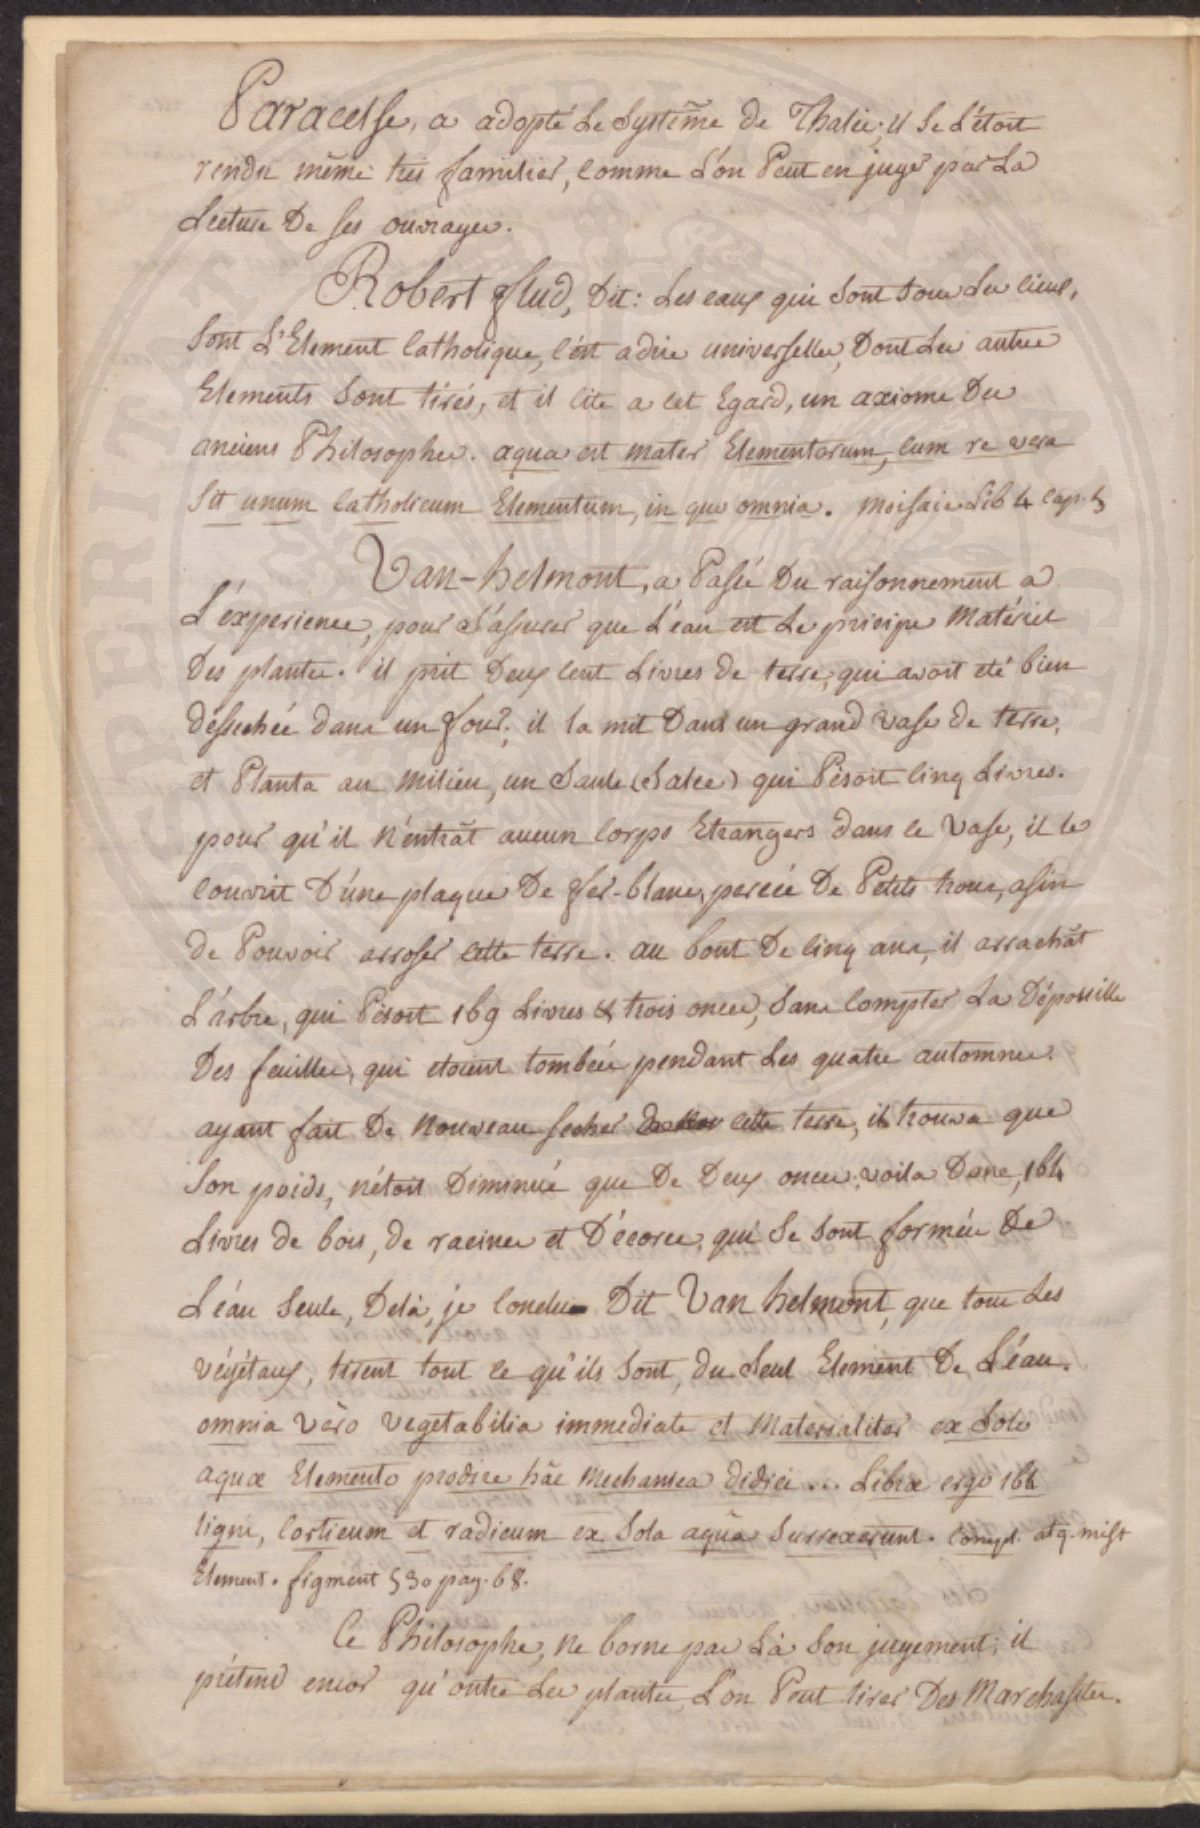 Paracelse, a adopté Le Systême de Thales; il Se L'étoit
rendu même très familier, comme L'on Peut en juger par La
Lecture De ses ouvrages.
Robert flud, Dit: Les eaux qui Sont Sous Les cieux,
Sont L'Element Catholique, C'est a dire universelle, Dont Les autres
Elements Sont tirés, et il Cite a Cet Egard, un axiome Des
anciens Philosophes. aqua est mater Elementorum, Cum re vera
Sit unum Catholicum Elementum, in quo omnia. Moisaic Lib 4 Cap. 5
Van-helmont, a Passé Du raisonnement a
L'éxperience, pour s'assurer que L'éau est Le principe Matériel
Des plantes. il prit Deux Cent Livres de terre, qui avoit eté bien
dessechée dans un four; il la mit Dans un grand vase de terre,
et Planta au Milieu, un Saule (Salce) qui Pésoit Cinq Livres.
pour qu'il N'entrât aucun Corps Etrangers dans le Vase, il le
Couvrit D'une plaque De fer-blanc, percée De Petits trous, afin
de Pouvoir arroser Cette terre. au bout De Cinq ans, il arrachât
L'arbre, qui Pésoit 169 Livres & trois onces, Sans Compter La Dépouille
Des feuilles, qui etoient tombées pendant Les quatre automnes.
ayant fait De Nouveau secher cette terre, il trouva que
Son poids, n'étoit Diminué que De Deux onces; voila Donc, 164
Livres de bois, de racines et D'écorce, qui Se Sont formées De
L'éau Seule, Delà, je Conclus Dit Van helmont, que tous Les
végétaux, tirent tout ce qu'ils Sont, du Seul Element De L'éau.
omnia vèro vegetabilia immediate et Materialiter ex Solo
aquæ Elemento prodire hâc Mechanica didici... Libræ ergo 164
ligni, Corticum et radicum ex Sola aquâ Surrexerunt. Compl. atq. mist
Element. figment §30 pag. 68.
Ce Philosophe, Ne borne pas Là Son jugement; il
prétend encor qu'outre Les plantes, L'on Peut tirer Des Marchasites.